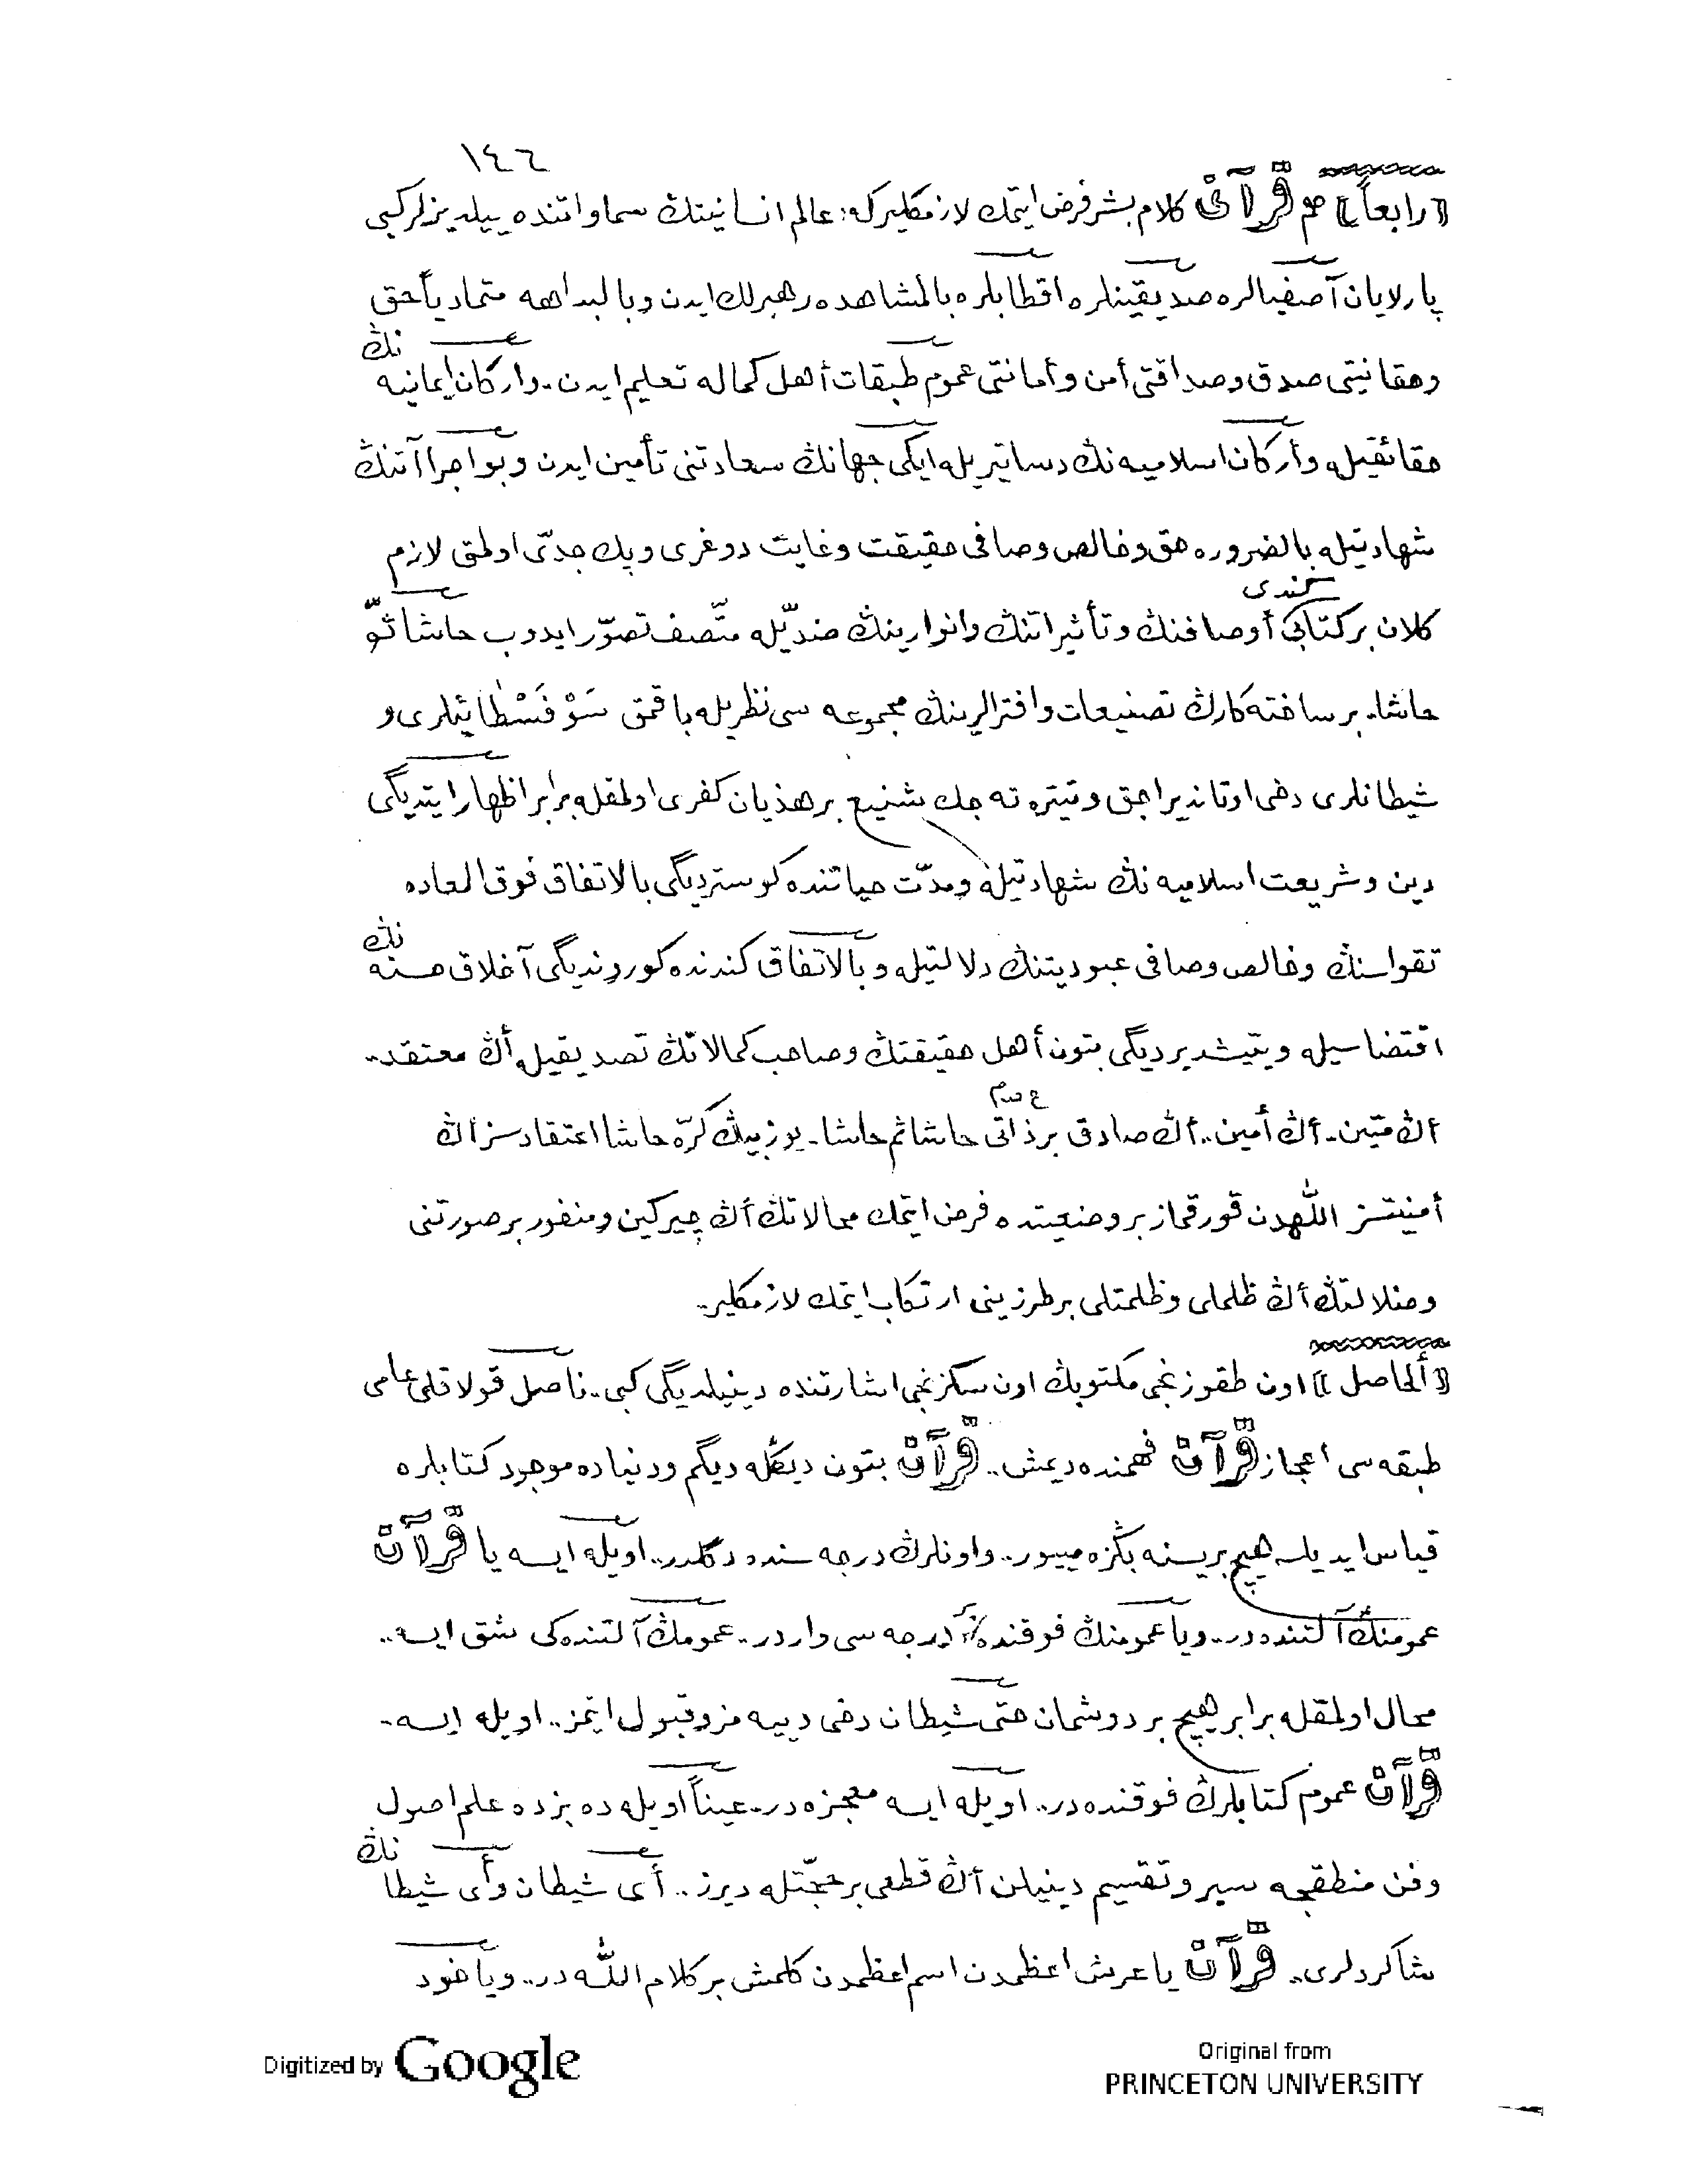 ١٤٦
﴿رابعاً﴾ هم قُرْآنْى كلام بشر فرض ايتمك لازمكليركه: عالم انسانيتك سماواتنده ييلديزلر كبى
پارلايان آصفيالره صديقينلره اقطابلره بالمشاهده رهبرلك ايدن وبالبداهه متمادياً حق
وحقانيتى صدق وصداقتى أمن وأمانتى عموم طبقات أهل كماله تعليم ايدن.. واركان ايمانيه نڭ
حقائقيله وأركان اسلاميه نڭ دساتيريله ايكى جهانڭ سعادتنى تأمين ايدن وبو اجراآتنڭ
شهادتيله بالضروره حق وخالص وصافى حقيقت وغايت دوغرى وپك جدّى اولمق لازم
كلان بر كتابى كندى أوصافنڭ وتأثيراتنڭ وانوارينڭ ضديّله متّصف تصوّر ايدوب حاشا ثمّ
حاشا.. بر ساخته كارڭ تصنيعات وافترالرينڭ مجموعه سى نظريله باقمق سَوْفَسْطائيلرى و
شيطانلرى دخى اوتانديراجق وتيتره ته جك شنيع بر هذيان كفرى اولمقله برابر اظهار ايتديگى
دين وشريعت اسلاميه نڭ شهادتيله ومدّت حياتنده كوسترديگى بالاتفاق فوق العاده
تقواسنڭ وخالص وصافى عبوديتنڭ دلالتيله وبالاتفاق كندنده كوروندیگى آخلاق حسنه نڭ
اقتضاسيله ويتيشديرديگى بتون أهل حقيقتڭ وصاحب كمالاتڭ تصديقيله أڭ معتقد..
أڭ متين.. أڭ أمين.. أڭ صادق بر ذاتى حاشا ثم حاشا.. يوز بيڭ كرّه حاشا اعتقادسز أڭ
أمنيتسز اللّهدن قورقماز بر وضعيتده فرض ايتمك محالاتڭ أڭ چيركين ومنفور بر صورتنى
وضلالتڭ أڭ ظلملى وظلمتلى بر طرزينى ارتكاب ايتمك لازمكلير..
﴿ألحاصل﴾ اون طقوزنجى مكتوبڭ اون سكزنجى اشارتنده دينيلديگى كبى.. ناصل قولاقلى عامى
طبقه سى اعجاز قُرْآنْ فهمنده ديمش.. قُرْآنْ بتون ديڭله ديگم ودنياده موجود كتابلره
قياس ايديلسه هيچ بريسنه بڭزه مييور.. واونلرڭ درجه سنده دگلدر.. اويله ايسه يا قُرْآنْ
عمومنڭ آلتنده در.. ويا عمومنڭ فوقنده بر درجه سى واردر.. عمومڭ آلتنده كى شق ايسه..
محال اولمقله برابر هيچ بر دوشمان حتى شيطان دخى دييه مز وقبول ايتمز.. اويله ايسه..
قُرْآنْ عموم كتابلرڭ فوقنده در.. اويله ايسه معجزه در.. عيناً اويله ده بزده علم اصول
وفن منطقجه سير وتقسيم دينيلن أڭ قطعى بر حجّتله ديرز.. أى شيطان وأى شيطانڭ
شاكردلرى.. قُرْآنْ يا عرش اعظمدن اسم اعظمدن كلمش بر كلام اللّٰه در.. وياخود
Digitized by Google
Original from
PRINCETON UNIVERSITY